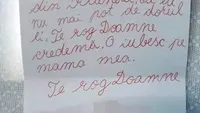 din
nu mai pot de dorul
ei. Te rog Doamne
credemă, O iubesc pe
mama mea.
Te rog Doamne